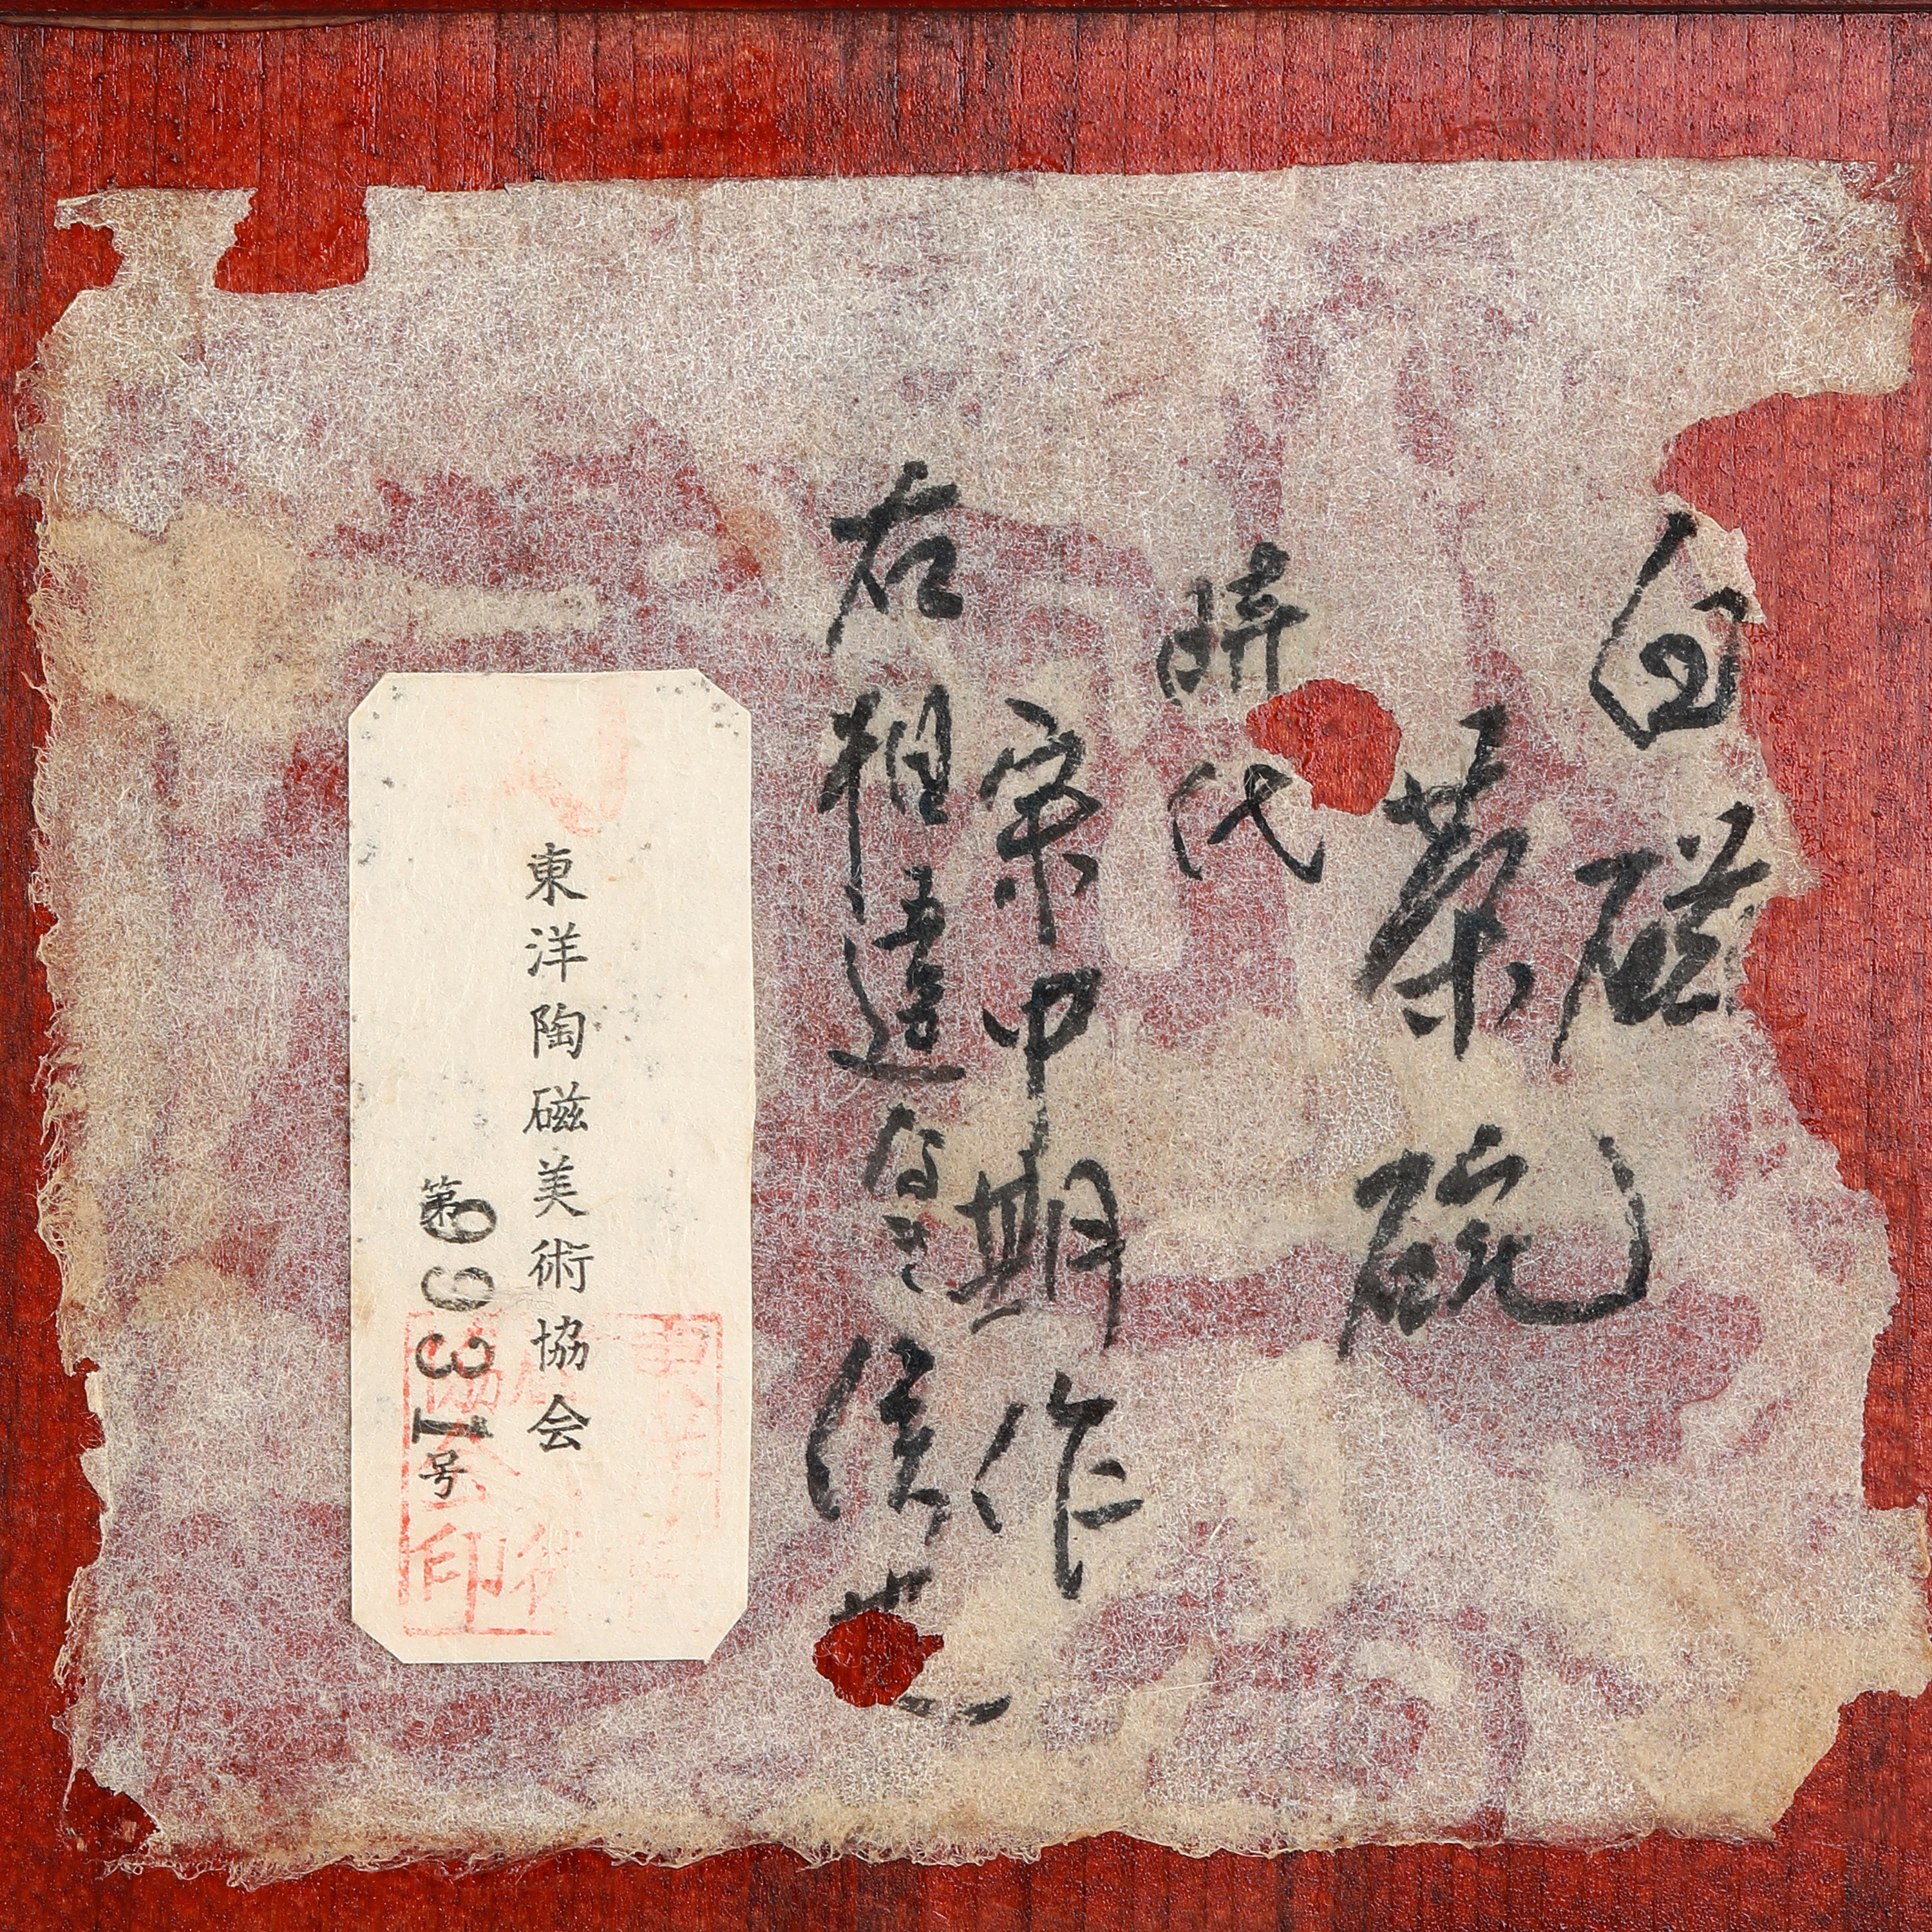 白磁
茶碗
時代
宋中期作
右相違なき候也
東洋陶磁美術協会
第9931号